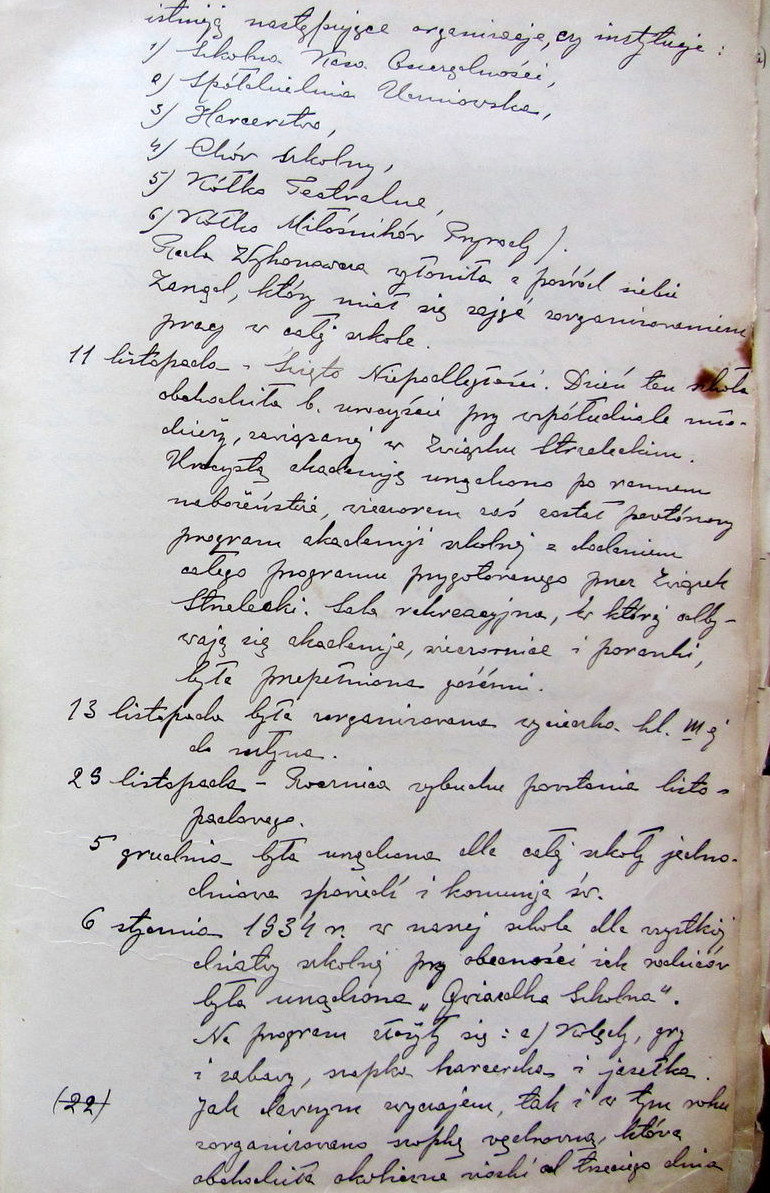 istnieją następujące organizacje, czy instytucje :
1) Szkolna Kasa Oszczędności,
2) Spółdzielnia Uczniowska,
3) Harcerstwo,
4) Chór szkolny,
5) Kółko Teatralne,
6) Kółko Miłośników Przyrody ).
Rada Wykonawcza wyłoniła z pośród siebie
Zarząd, który miał się zająć zorganizowaniem
pracy w całej szkole.
11 listopada - Święto Niepodległości. Dzień ten szkoła
obchodziła b. uroczyście przy współudziale mło-
dzieży, związanej w Związku Strzeleckim.
Uroczystą akademję urządzono po rannem
nabożeństwie, wieczorem zaś został powtórzony
program akademji szkolnej z dodaniem
całego programu przygotowanego przez Związek
Strzelecki. Sala rekreacyjna, w której odby-
wają się akademje, wieczornice i poranki,
była przepełniona gośćmi.
13 listopada była zorganizowana wycieczka kl. III ej
do młyna.
29 listopada - Rocznica wybuchu powstania listo-
padowego.
5 grudnia była urządzona dla całej szkoły jedno-
dniowa spowiedź i komunja św.
6 stycznia 1934 r. w naszej szkole dla wszystkiej
dziatwy szkolnej przy obecności ich rodziców
była urządzona „Gwiazdka Szkolna".
Na program złożyły się : a) Kolędy, gry
i zabawy, szopka harcerska i jasełka.
(22) Jak dawnym zwyczajem, tak i w tym roku
zorganizowano szopkę wędrowną, która
obchodziła okoliczne wioski od trzeciego dnia